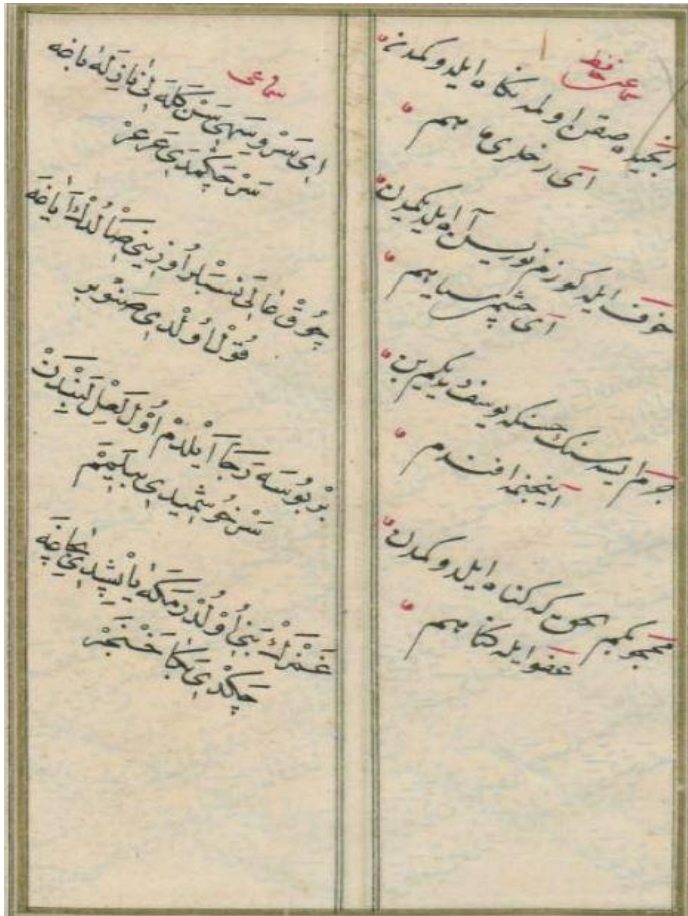 سماعی حافظ
انجیده صقن اولمه نگاه ایلدوکمدن
ای رخلری ماهم
خوف ایله کوزم نوریس آه ایلدیکمدن
ای چشمی سیاهم
جرم ایسه سنك حسنکه یوسف دیدیکم بن
اینجنمه افندم
محجوبکم بحق که کناه ایلدوکمدن
عفو ایله کناهم
سماعی
اِی سَرْوِ سَهِی سَنْ کَلَه لِی نَازِلَه بَاغَه
سَرْ چَکْمَدِی عَرْعَرْ
چُوقْ غَالَی نِسَبْلَر اُوزِینِی صَالْدُلَرْ اَیَاغَه
قُولْ اُولْدِی صَنَوْبَر
بِرْ بُوسَه رَجَا اَیْلَدِمْ اُولْ لَعْلِ لَبِنْدَنْ
سَرْخُوشْمِیدِی بِیلْمَمْ
غَمْزَه‌ڭْ بَنِی اُولْدُرْمَکَه یَاپِشْدِی بِچَاغَه
چَکْدِی بَکَا خَنْجَرْ